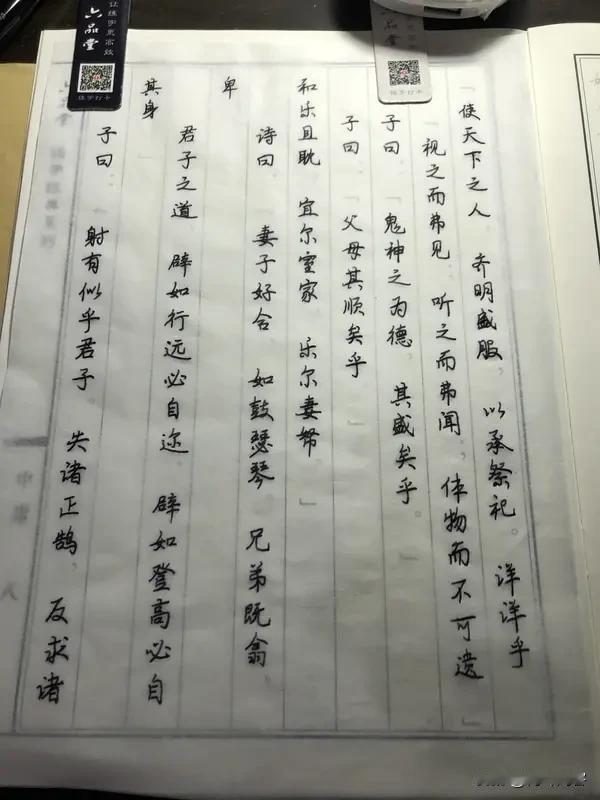 让练字更高效
六品堂
练字打卡
六品堂
练字打卡
子曰 「射有似乎君子。 失诸正鹄, 反求诸
其身」
君子之道 辟如行远必自迩 辟如登高必自
卑
诗曰 「妻子好合 如鼓瑟琴。 兄弟既翕
和乐且耽 宜尔室家 乐尔妻帑」
子曰 「父母其顺矣乎」
子曰 「鬼神之为德, 其盛矣乎。」
「视之而弗见, 听之而弗闻, 体物而不可遗」
「使天下之人 齐明盛服, 以承祭祀。 洋洋乎
中庸